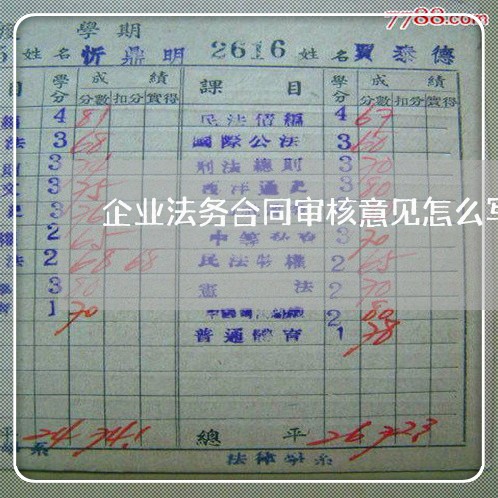 7788.com
學期
姓名 忻鼎明 2616 姓名 賈泰德
目 學分 成績 課目 學分 成績
分數 扣分 實得 分數 扣分 實得
4 81 民法債編 4 67
法 3 68 國際公法 3 60
3 刑法總則 3 70
3 75 西洋通史 3 80
企业法务合同审核意见怎么写
2 65 3 70
法 2 68 68 民法物權 2 65
3 80 憲法 2 70
1 70 2 80
普通體育 1 78
平 24 74.1 總平 26 72.3
系 法律學系